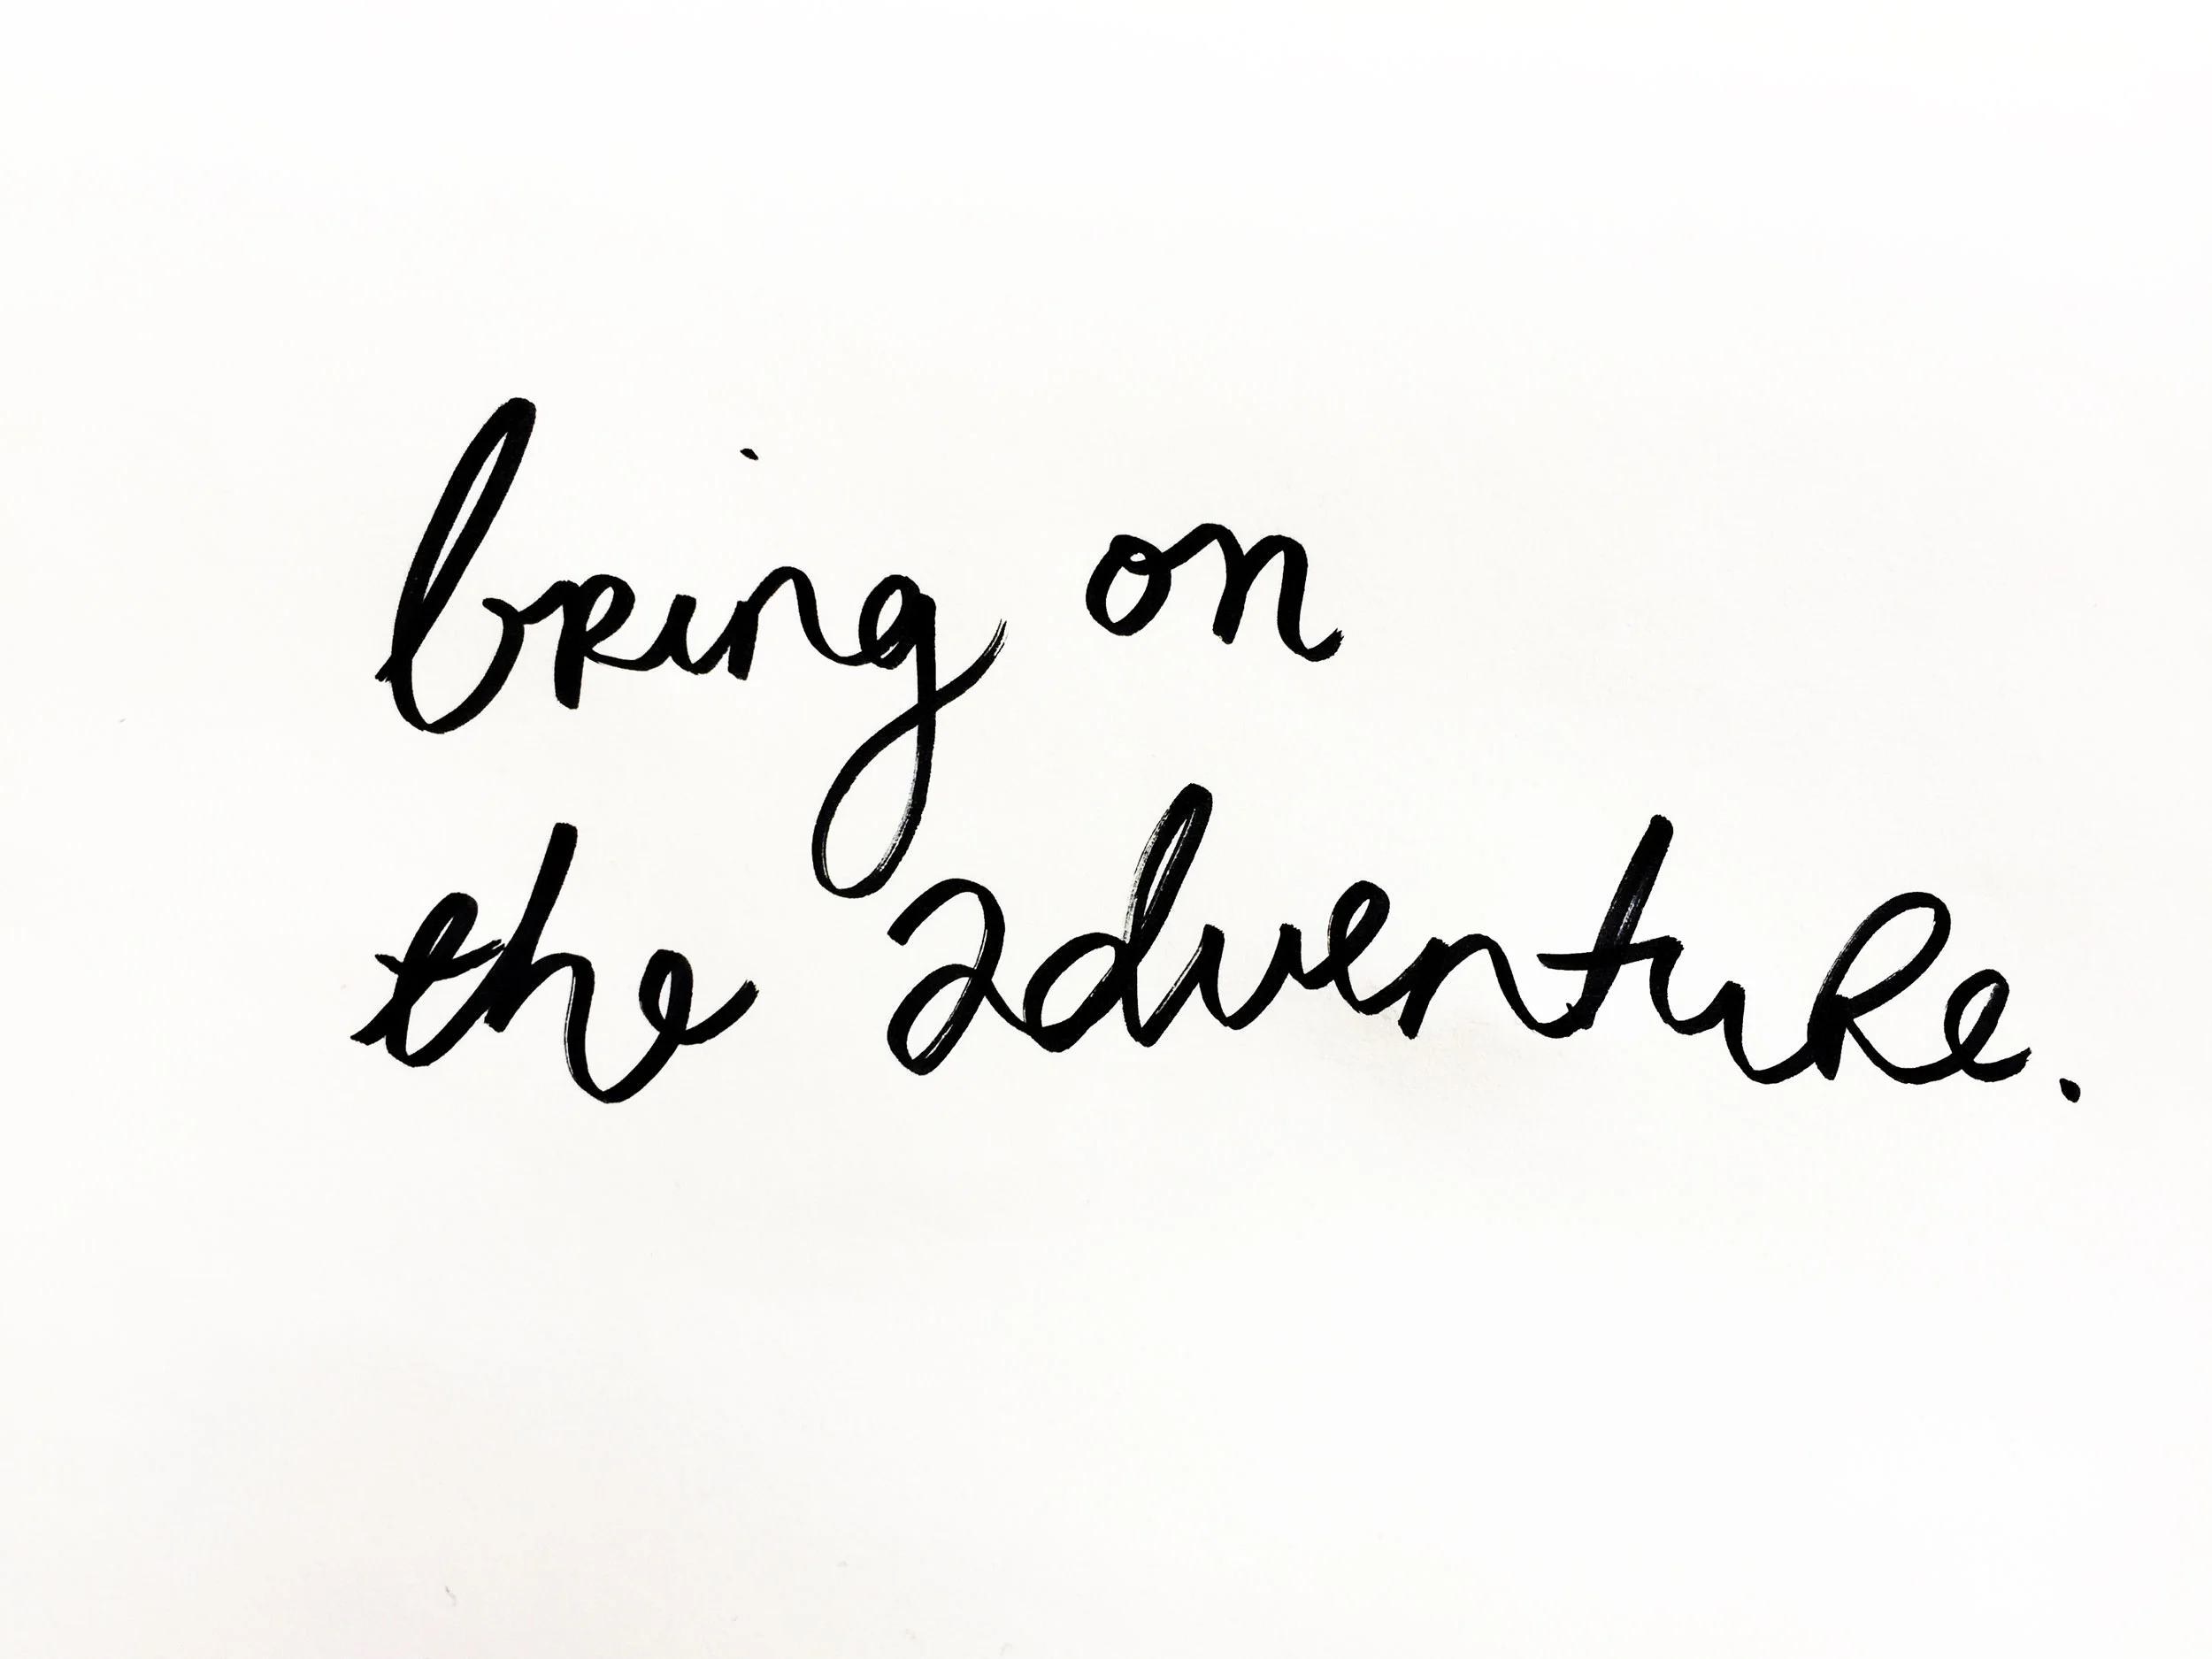 bring on
the adventure.